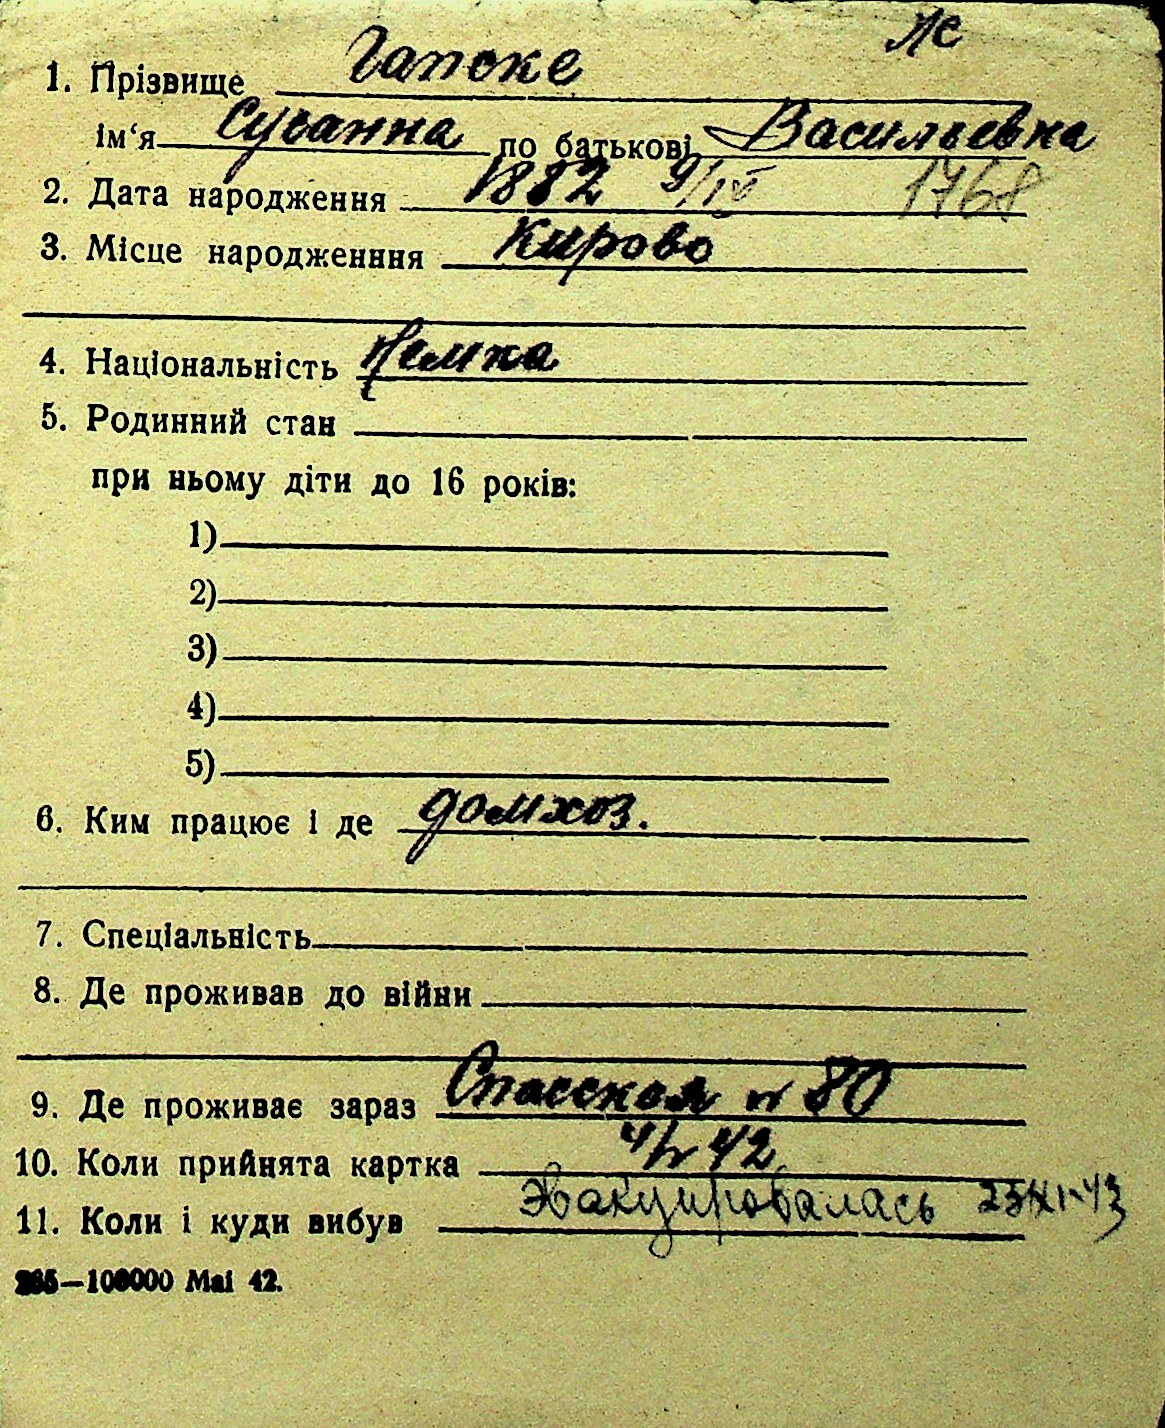 1. Прізвище Гапске
ім‘я Сусанна по батькові Васильевна
2. Дата народження 1882 9/IV 1768
3. Місце народженння Кирово
4. Національність Немка
5. Родинний стан
при ньому діти до 16 років:
1)
2)
3)
4)
5)
6. Ким працює і де домхоз.
7. Спеціальність
8. Де проживав до війни
9. Де проживає зараз Спасская № 80
10. Коли прийнята картка 42
11. Коли і куди вибув Эвакуировалась 25/XI-43
265—100000 Маі 42.